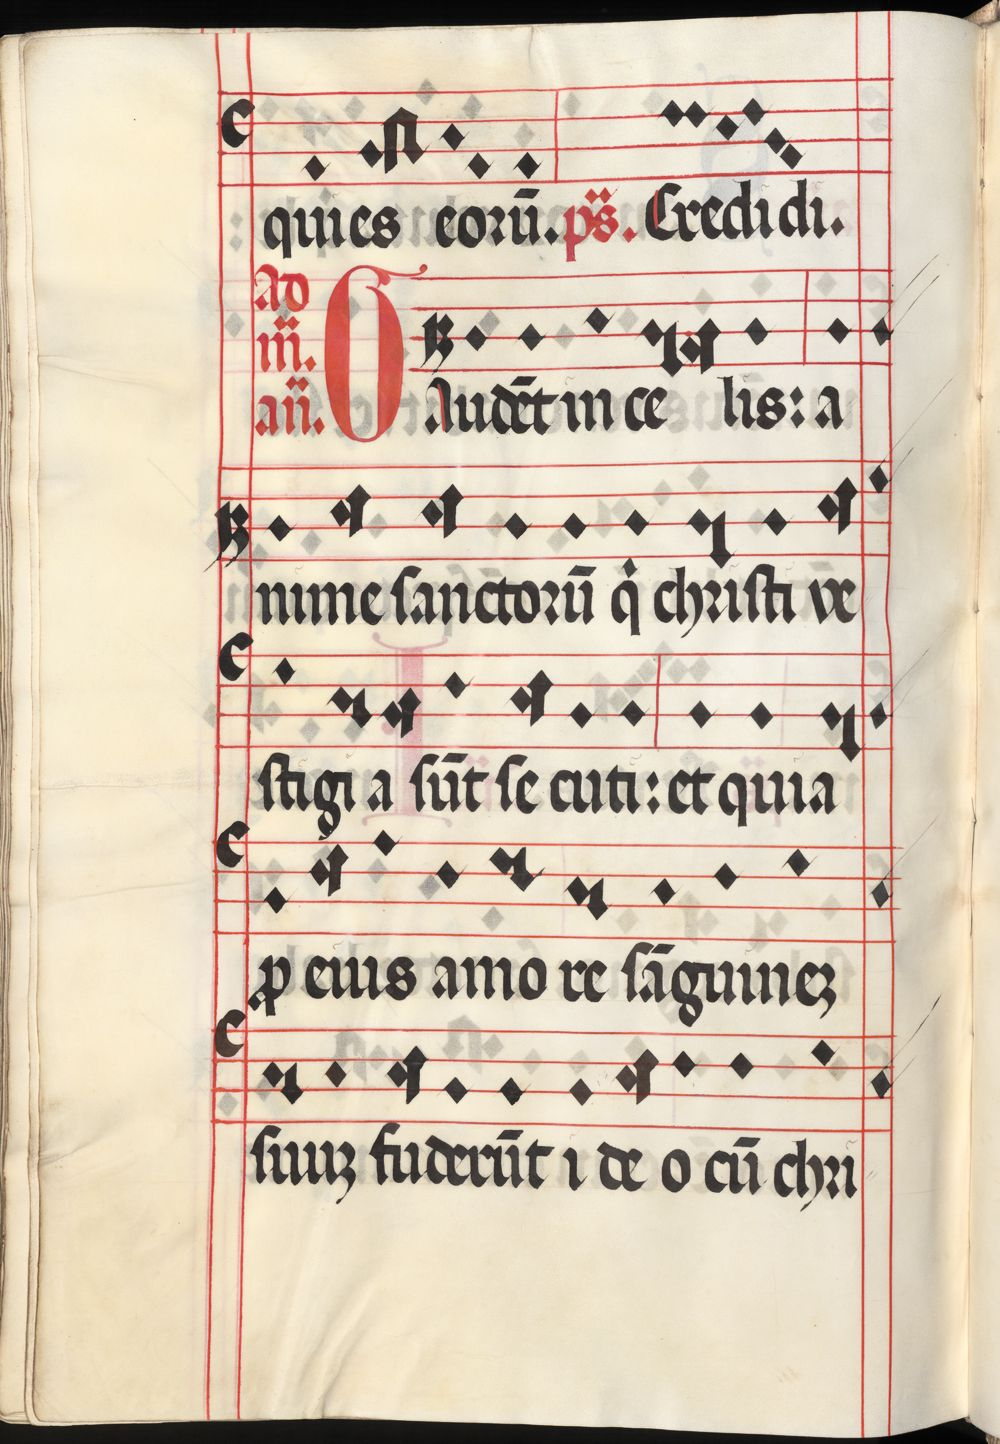 quies eorū. ps. Credidi.
Ad
iii.
añ. Gaudēt in ce lis: a
nime sanctorū q̇ christi ve
stigi a sūt se cuti: et quia
ꝓ eius amo re sāguineȝ
suuȝ fuderūt i de o cū chri